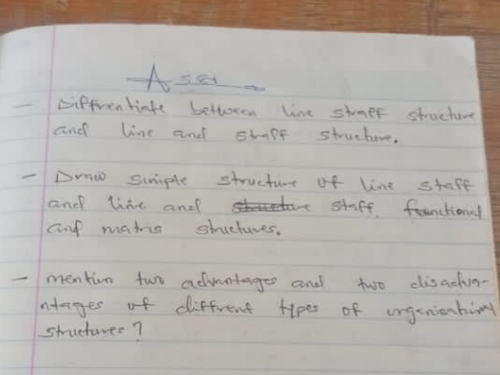 Asst
- Diffrentiate between line straff structure
and line and staff structure.
- Draw simple structure of line staff
and line and structure staff, functional
and matrix structures.
- mention two advantages and two disadva-
ntages of diffrent types of organisational
structures?